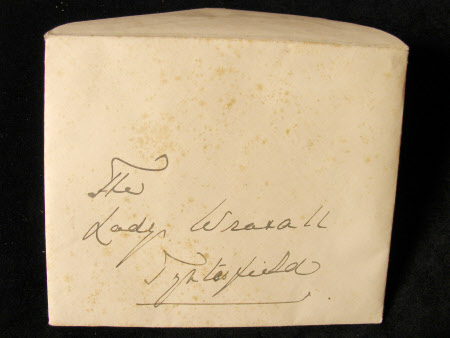 The
Lady Wraxall
Tyntesfield